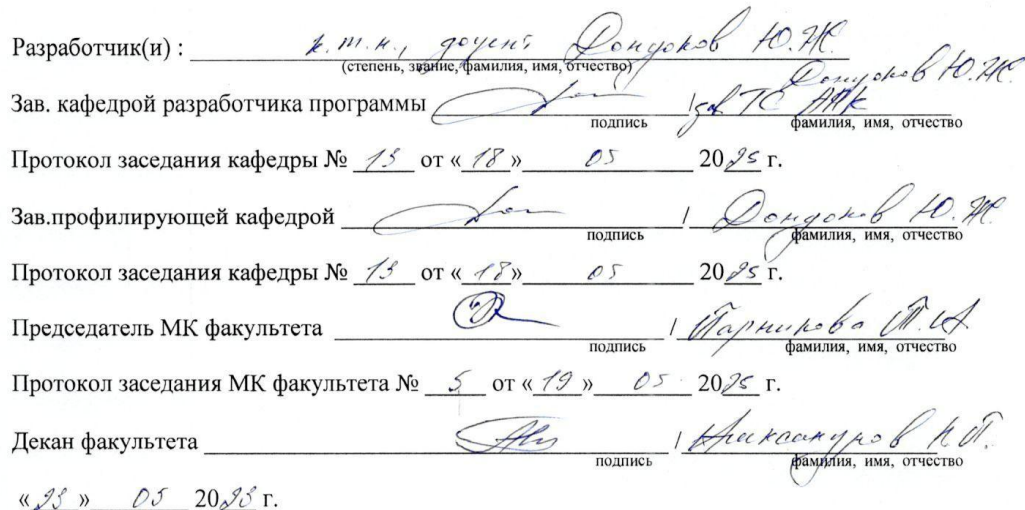 Разработчик(и) : к.т.н., доцент Дондоков Ю.Ж.
(степень, звание, фамилия, имя, отчество)
Дондоков Ю.Ж.
Зав. кафедрой разработчика программы / зав ТС АПК
подпись фамилия, имя, отчество
Протокол заседания кафедры № 13 от « 18 » 05 20 г.
Зав.профилирующей кафедрой / Дондоков Ю.Ж.
подпись фамилия, имя, отчество
Протокол заседания кафедры № 13 от « 18 » 05 20 г.
Председатель МК факультета / Парникова Т.А
подпись фамилия, имя, отчество
Протокол заседания МК факультета № 5 от « 19 » 05 20 г.
Декан факультета / Александров Н.П.
подпись фамилия, имя, отчество
« 23 » 05 2023 г.